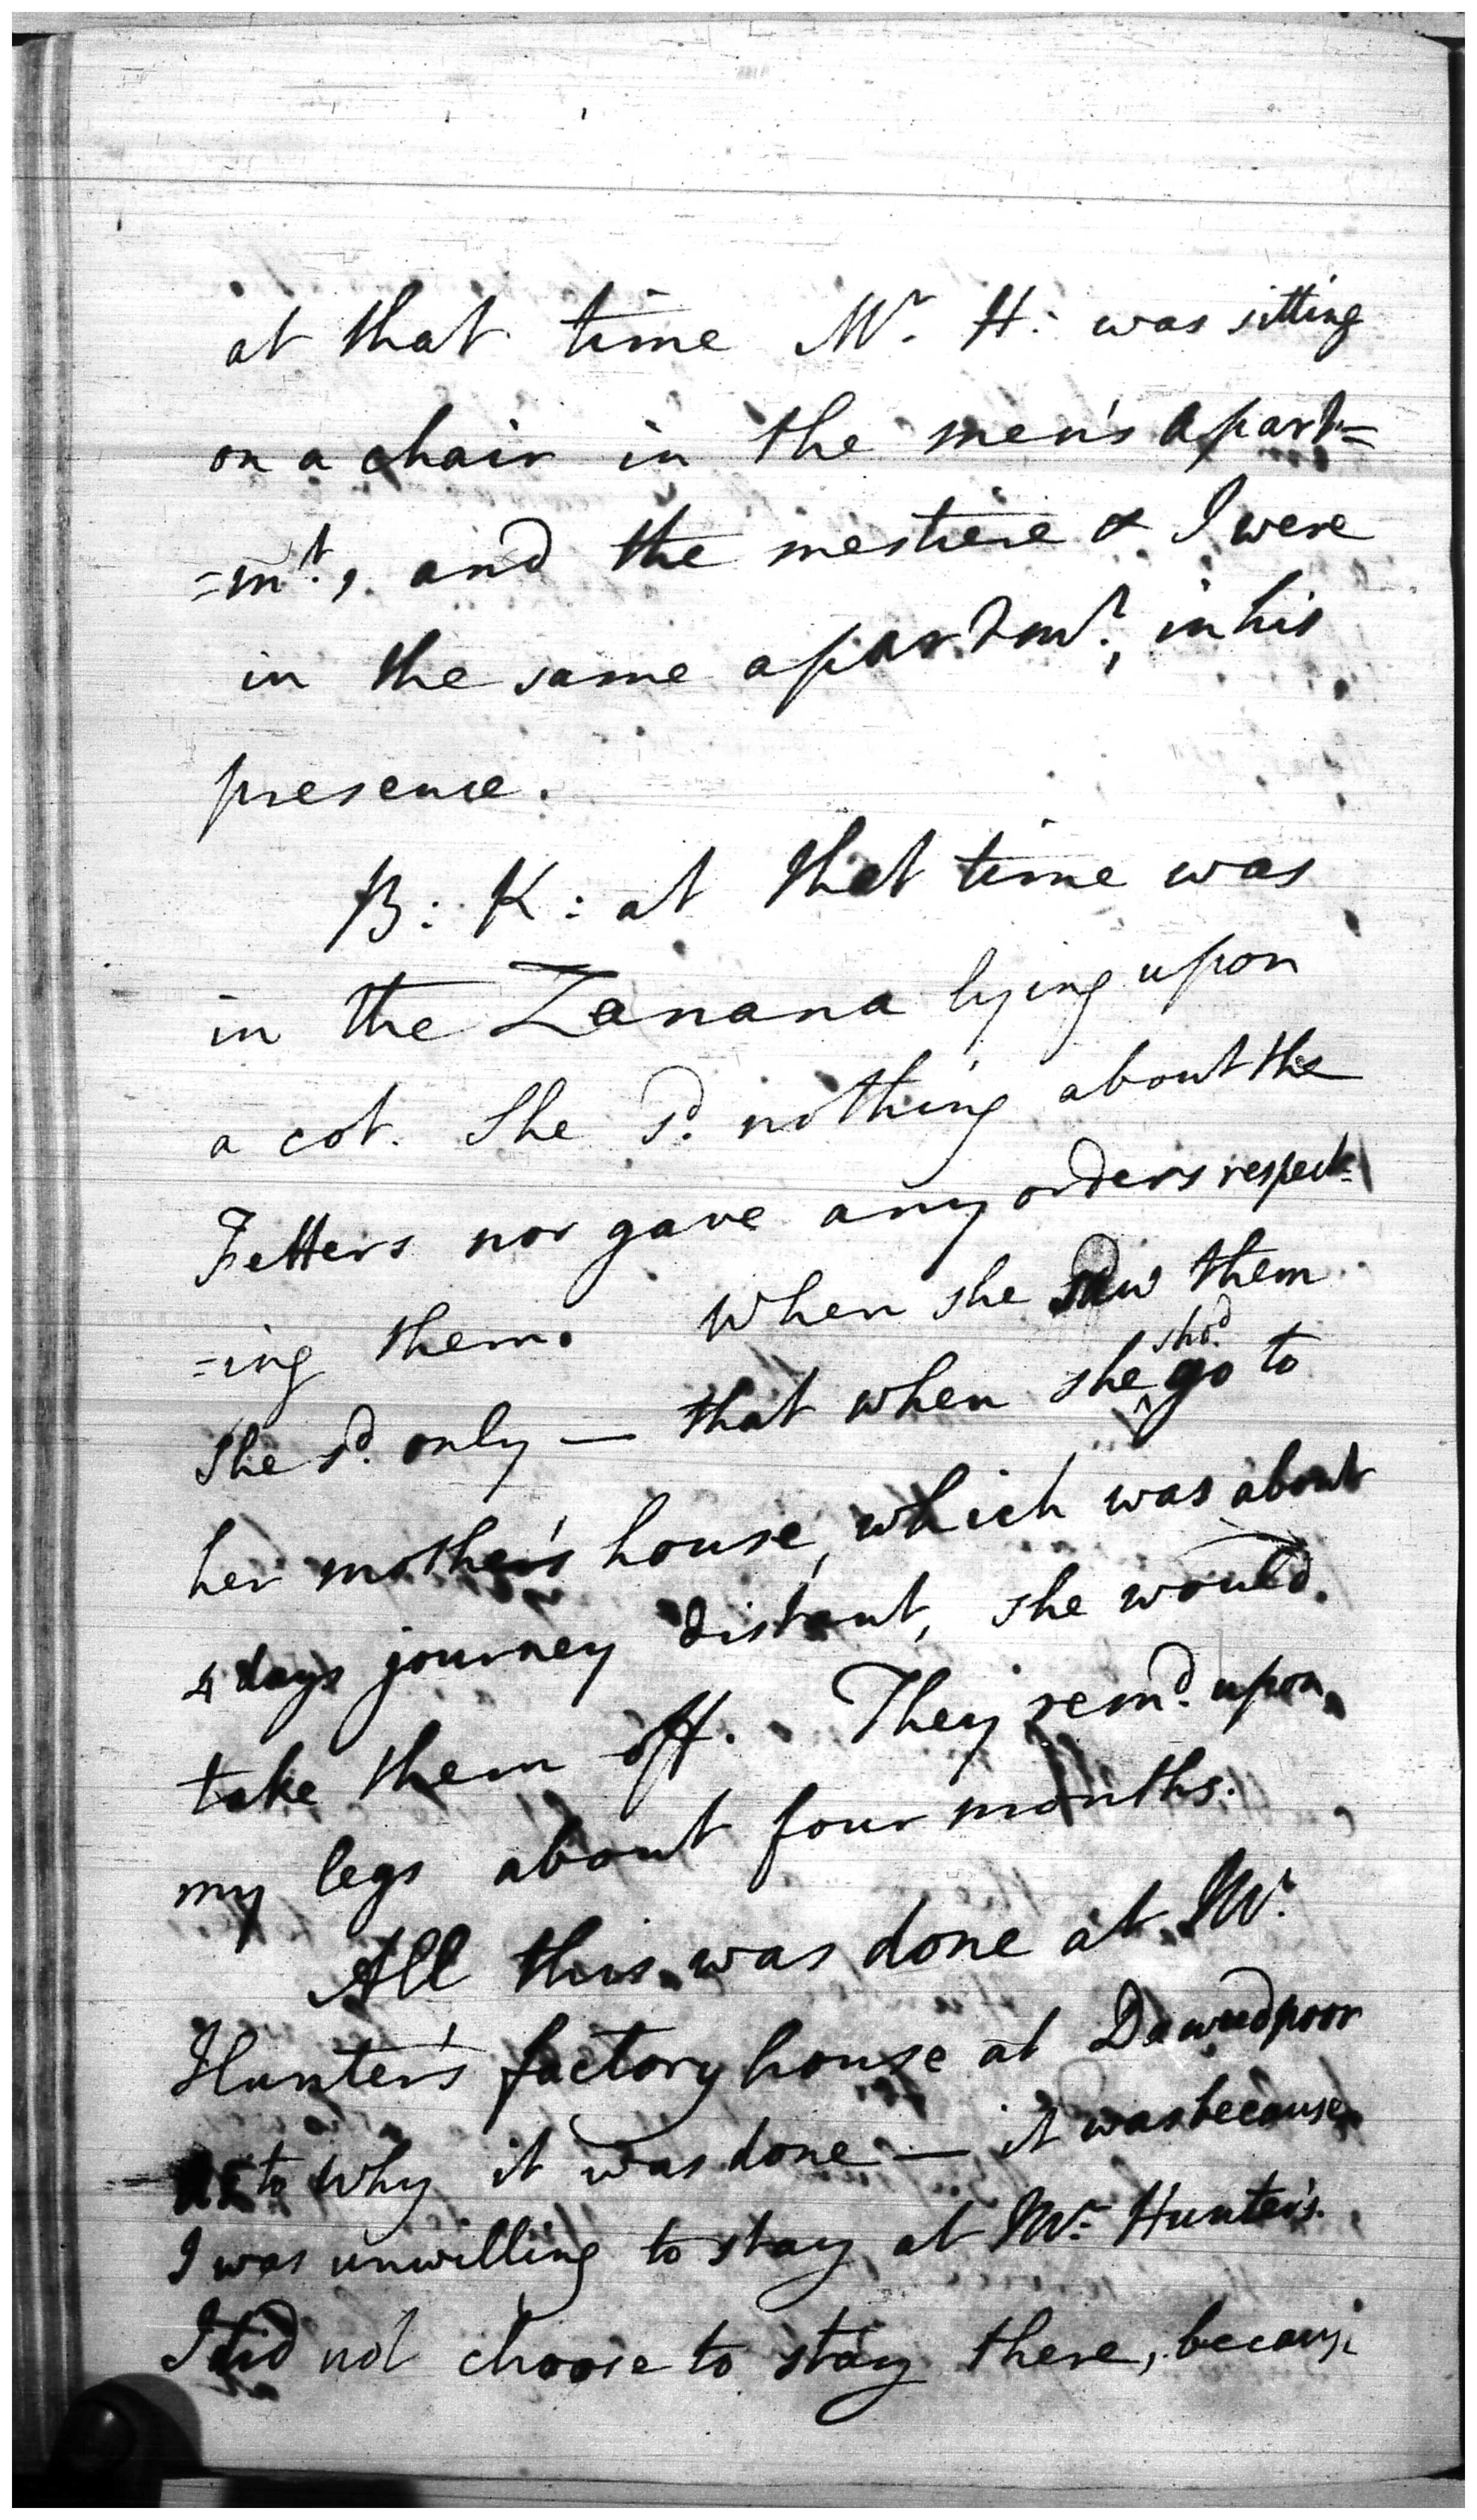 at that time Mr. H: was sitting
on a chair in the men's apart=
=mt., and the mestiere & I were
in the same apartmt., in his
presence.
B: K: at that time was
in the Zanana lying upon
a cot. She sd. nothing about the
Fetters nor gave any orders respect=
=ing them. When she saw them
she sd. only — that when she shod. go to
her mother's house, which was about
4 days journey distant, she would
take them off. They remd. upon
my legs about four months.
All this was done at Mr.
Hunter's factory house at Dawudpoor
As to why it was done — it was because
I was unwilling to stay at Mr. Hunter's.
I did not choose to stay there, because